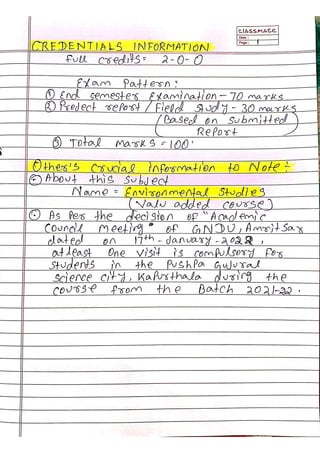 CLASSMATE
Date :
Page : 1
CREDENTIALS INFORMATION
Full credits = 2-0-0
Exam Pattern:
① End semester Examination - 70 marks
② Project report / Field Study - 30 marks
(Based on submitted
Report)
③ Total Marks = 100.
Other's Crucial information to Note:-
About this subject
Name = Environmental Studies
(Valu added course)
As Per the decision of "Academic
Council Meeting" of GNDU, Amritsar
dated on 17th-January-2022,
atleast One visit is compulsory for
students in the Pushpa Gujural
science city, Kapurthala during the
course from the Batch 2021-22.